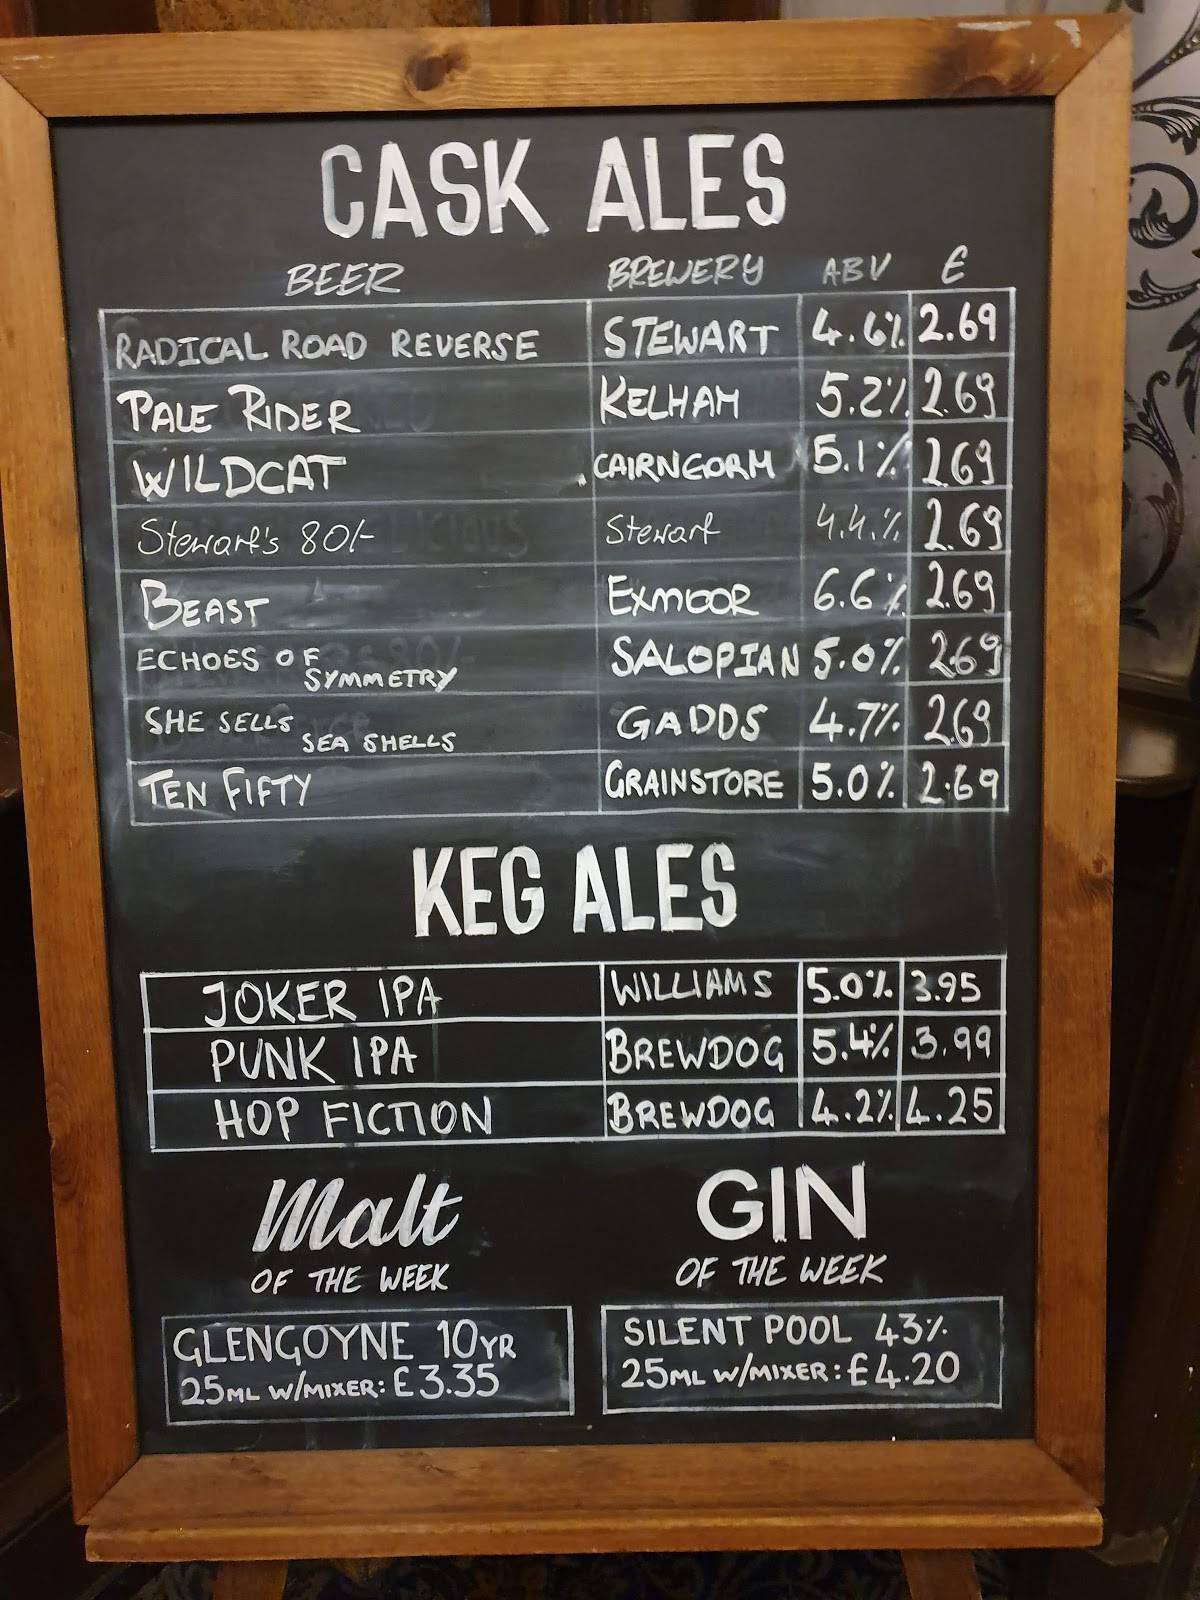 CASK ALES
BEER BREWERY ABV £
RADICAL ROAD REVERSE STEWART 4.6% 2.69
PALE RIDER KELHAM 5.2% 2.69
WILDCAT CAIRNGORM 5.1% 2.69
Stewart's 80/- Stewart 4.4.% 2.69
BEAST EXMOOR 6.6% 2.69
ECHOES OF SALOPIAN 5.0% 2.69
SYMMETRY
SHE SELLS GADDS 4.7% 2.69
SEA SHELLS
TEN FIFTY GRAINSTORE 5.0% 2.69
KEG ALES
JOKER IPA WILLIAMS 5.0% 3.95
PUNK IPA BREWDOG 5.4% 3.99
HOP FICTION BREWDOG 4.2% 4.25
Malt
OF THE WEEK
GLENGOYNE 10YR
25ML W/MIXER: £3.35
GIN
OF THE WEEK
SILENT POOL 43%
25ML W/MIXER: £4.20